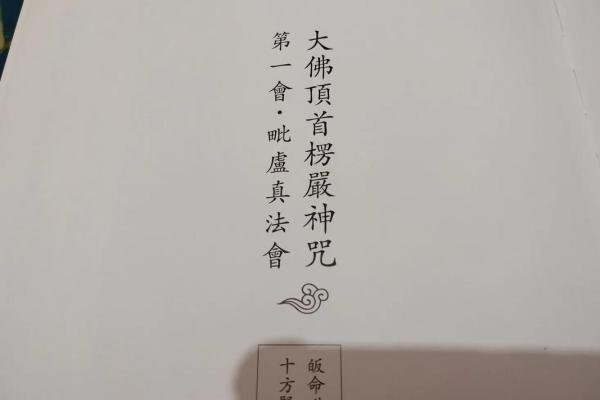 大佛頂首楞嚴神咒
第一會·毗盧真法會
皈命
十方